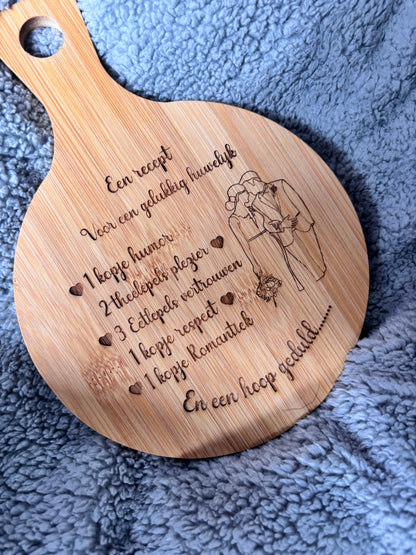 Een recept
Voor een gelukkig huwelijk
1 kopje humor
2 theelepels plezier
3 Eetlepels vertrouwen
1 kopje respect
1 kopje Romantiek
En een hoop geduld.......